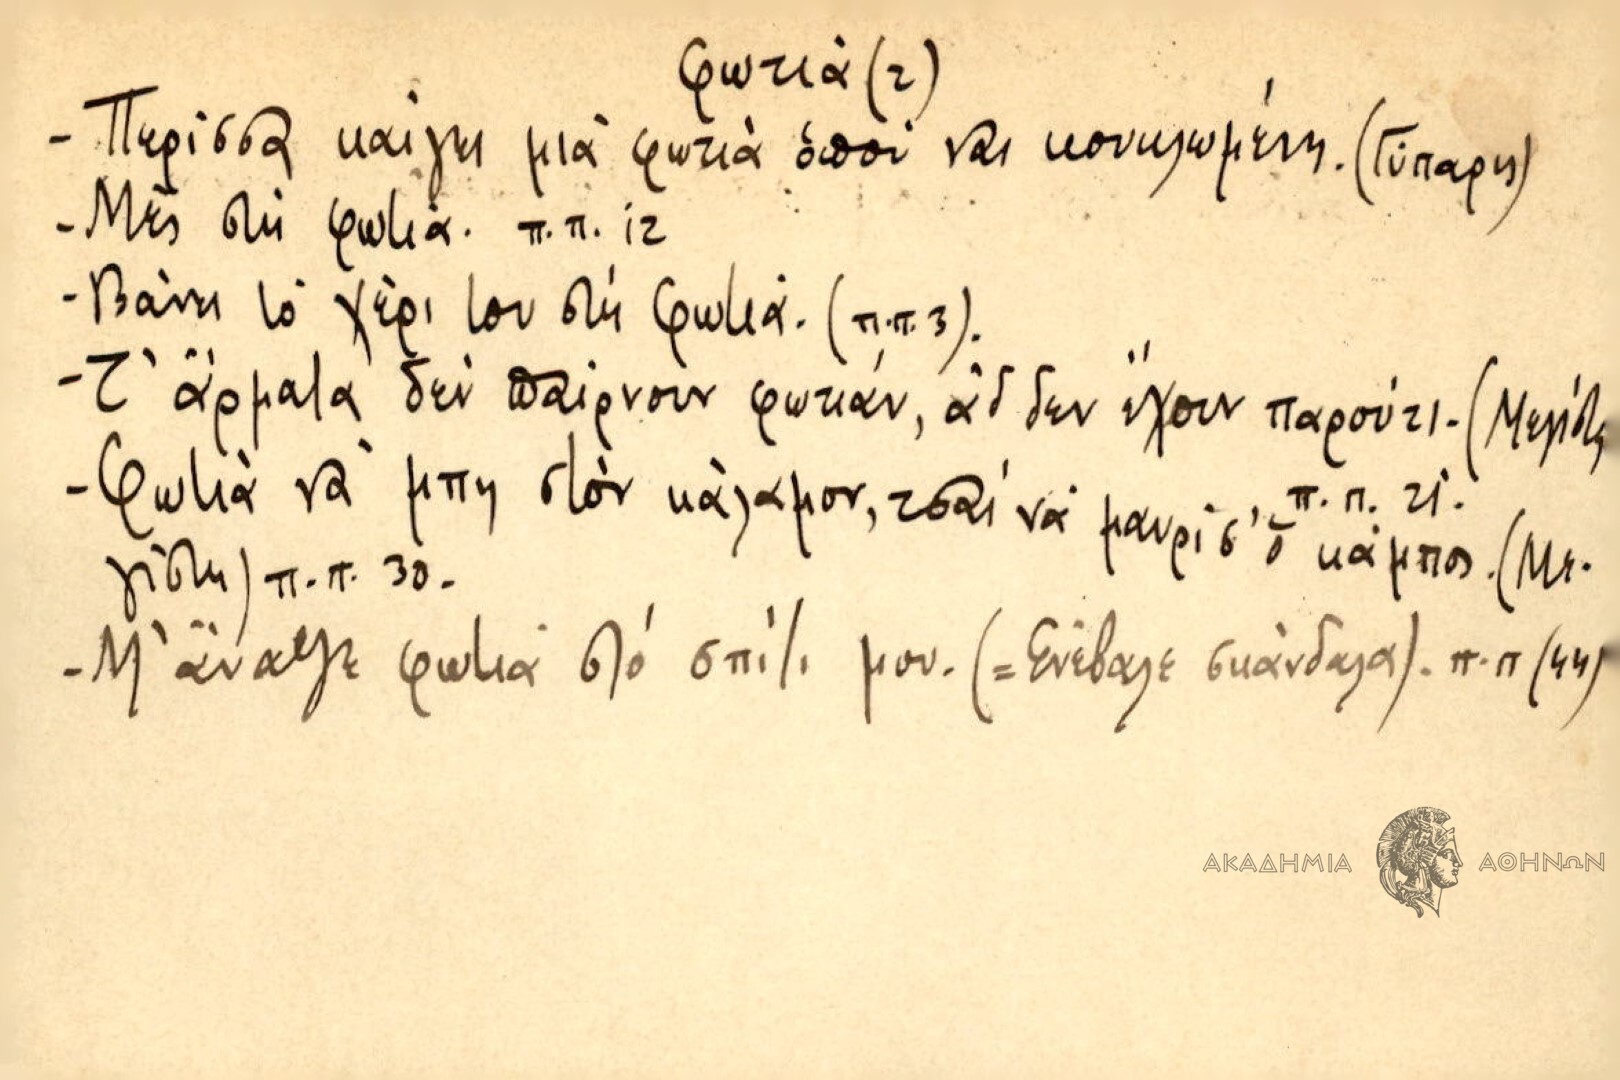 φωτιὰ (2)
- Περίσσα καίγει μιὰ φωτιὰ ὁποὺ ναι κουκλωμένη. (Γύπαρης)
- Μὲς στὴ φωτιά. π.π. 12
- Βάνει τὸ χέρι του στὴ φωτιά. (π.π. 3).
- Τ' ἄρματα δὲν παίρνουν φωτιάν, ἂδ δεν ἔχουν παρούτι. (Μεγίστη
, π. π. 21.
- Φωτιὰ νὰ μπῃ στὸν κάλαμον, τσαὶ νὰ μαυρίσ' ὁ κάμπος. (Με-
γίστη) π.π. 30.-
- Μ' ἄναψε φωτιὰ στὸ σπίτι μου. (= Ἐνέβαλε σκάνδαλα). π.π (44)
ΑΚΑΔΗΜΙΑ ΑΘΗΝΩΝ